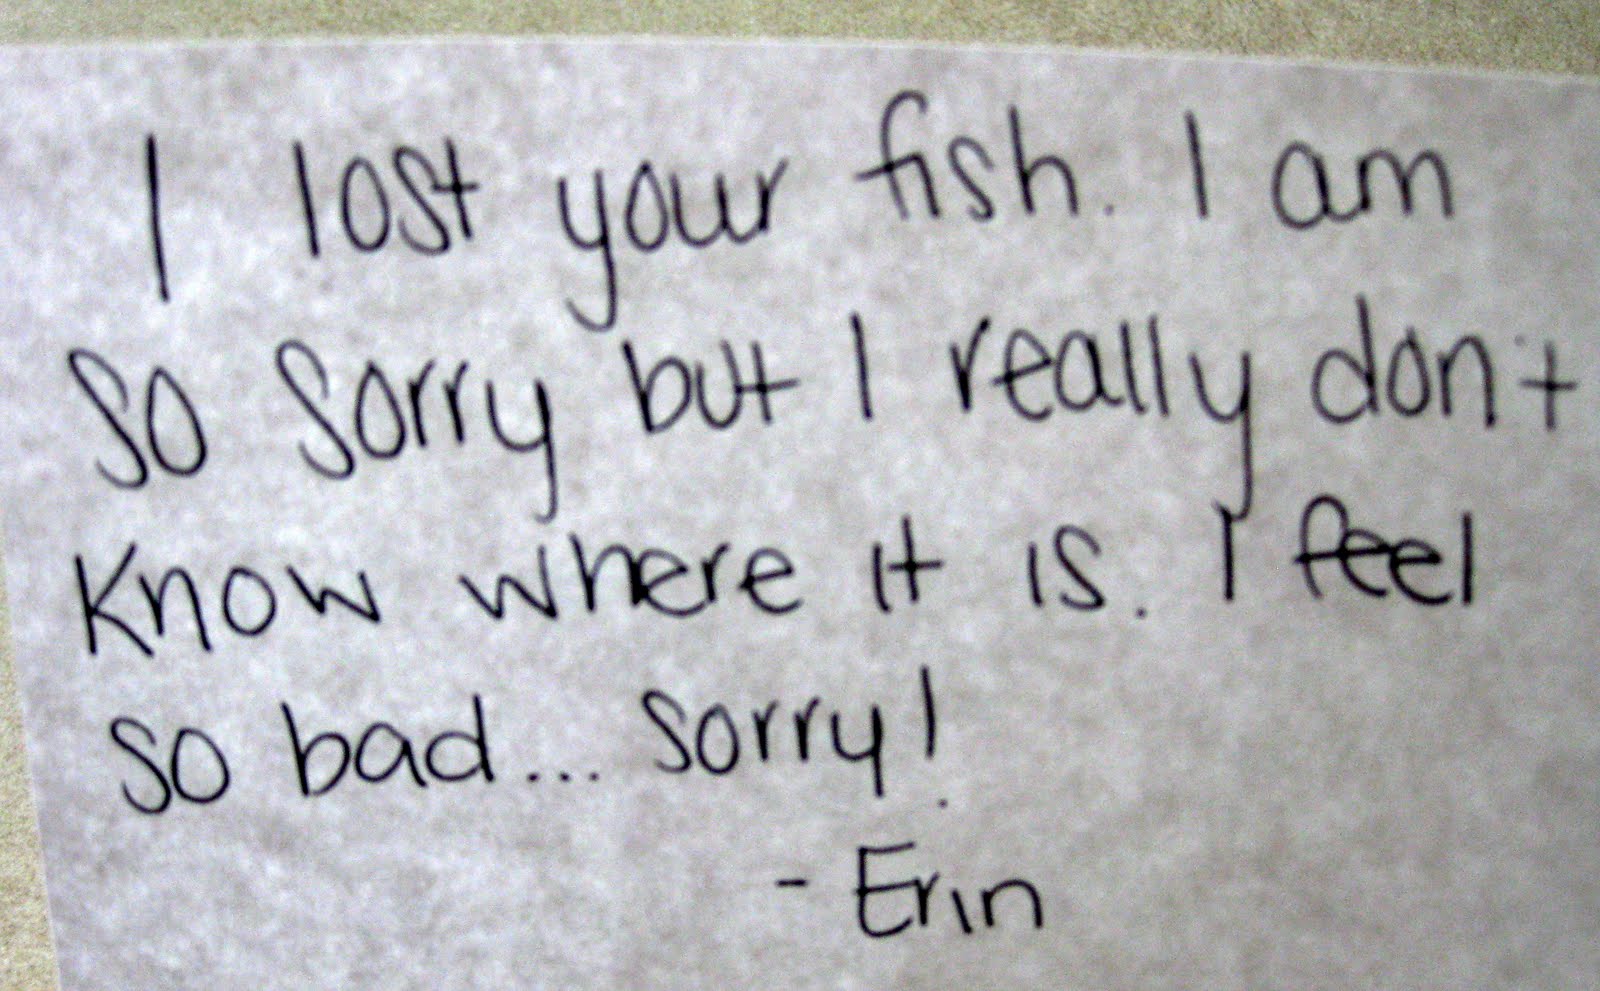 I lost your fish. I am
so sorry but I really don't
know where it is. I feel
so bad... sorry!
- Erin